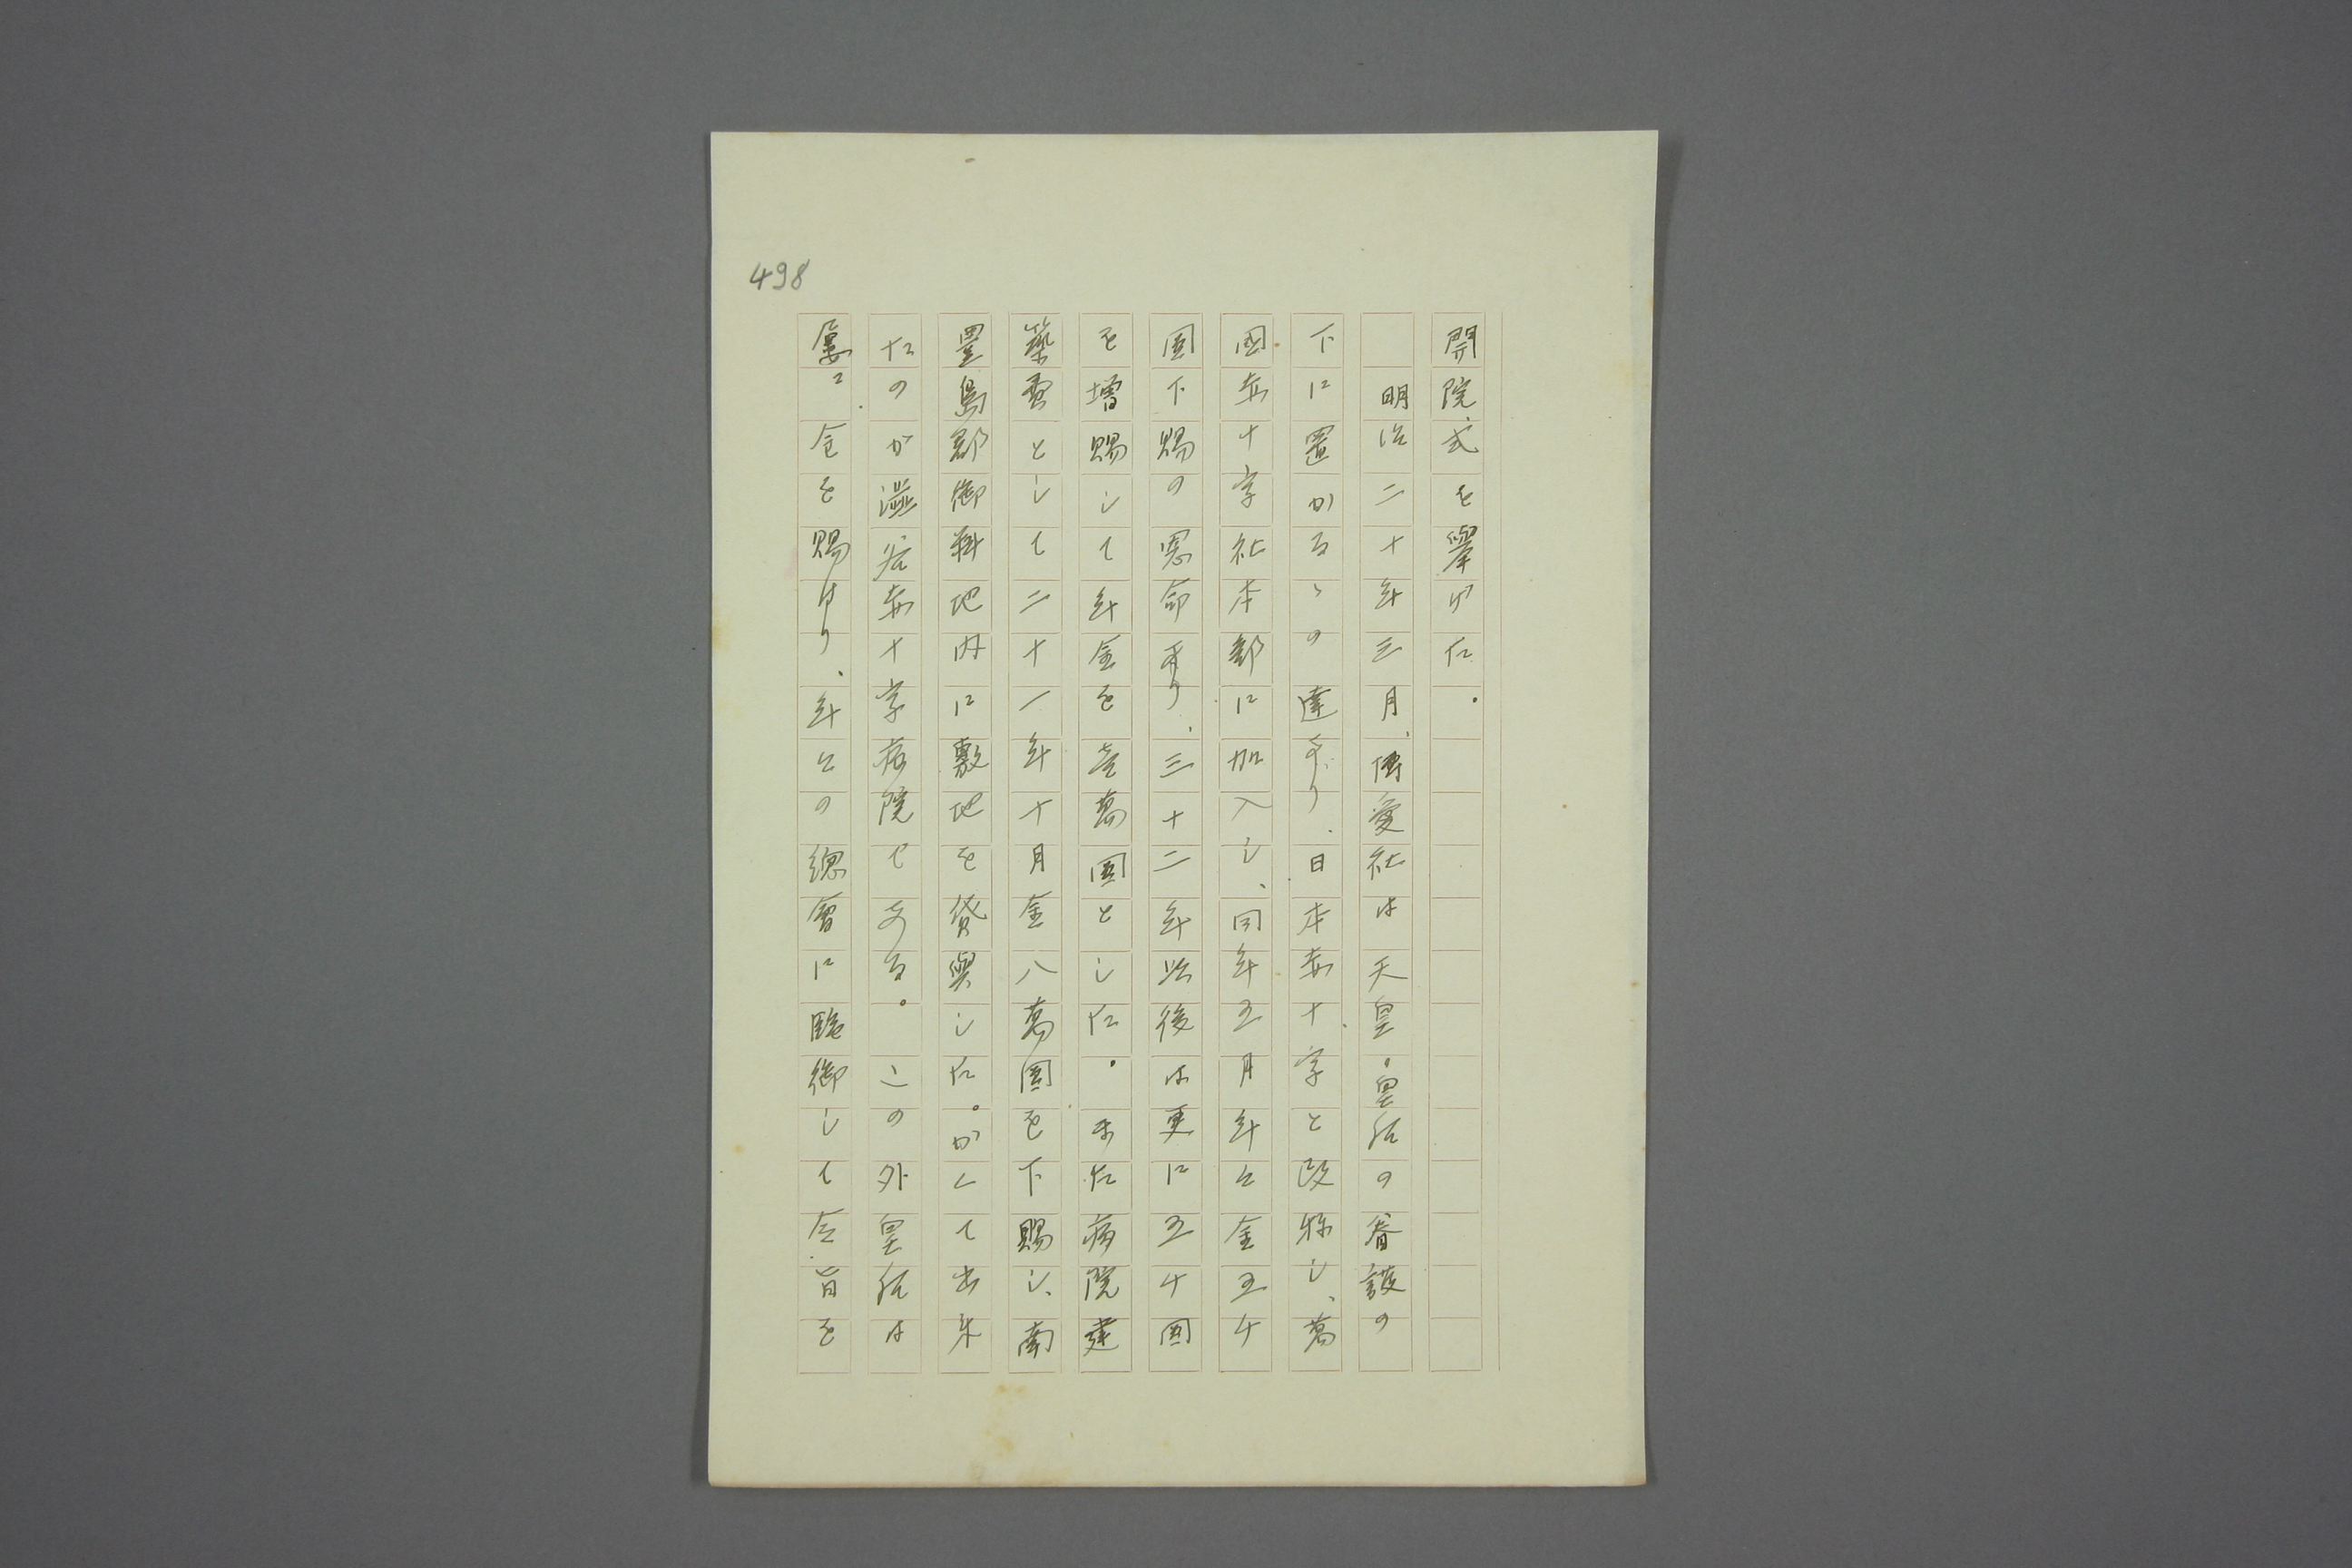 498
開院式を擧げた。
明治二十年三月、博愛社は天皇・皇后の眷護の
下に置かるゝの達あり、日本赤十字と改称し、萬
国赤十字社本部に加入し、同年五月年々金五千
圓下賜の恩命あり、三十二年以後は更に五千圓
を増賜して年金を壹萬圓とした。また病院建
築費として二十一年十月金八萬圓を下賜し、南
豊島郡御料地内に敷地を貸與した。かくて出来
たのが澁谷赤十字病院である。この外皇后は
屢々金を賜はり、年々の總會に臨御して令旨を